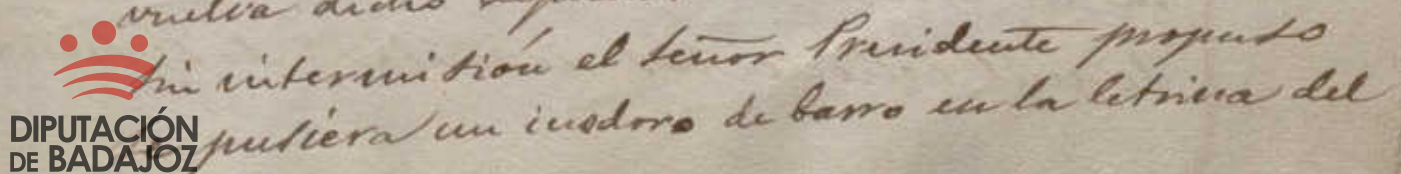 vuelva dicho
Sin intermisión el señor Presidente propuso
se pusiera un inodoro de barro en la letrina del
DIPUTACIÓN
DE BADAJOZ